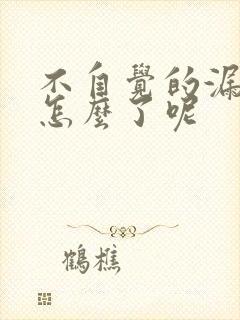 不自覺的漏
怎麼了呢
鶴樵